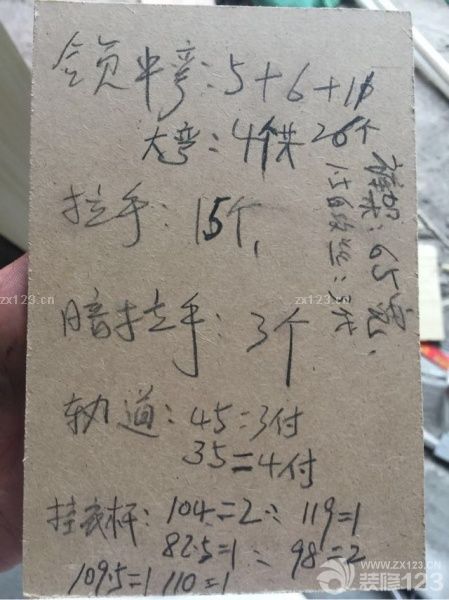 中弯: 5+6+11
大弯: 4个共26个
拉手: 15个,
暗拉手: 3个
轨道: 45=3付
35=4付
挂衣杆: 104=2; 119=1
82.5=1; 98=2
109.5=1 110=1
裤架: 65宽,
1.5自攻丝:
zx123.cn
zx123.cn
WWW.ZX123.CN
装修123